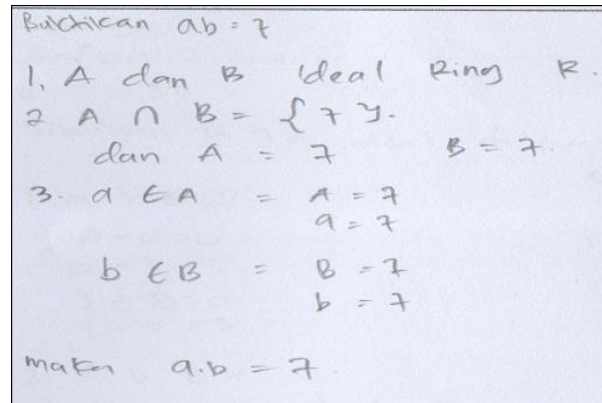 Buktikan ab = 7
1. A dan B Ideal Ring R.
2. A ∩ B = {7}.
dan A = 7 B = 7.
3. a ∈ A = A = 7
a = 7
b ∈ B = B = 7
b = 7
maka a.b = 7